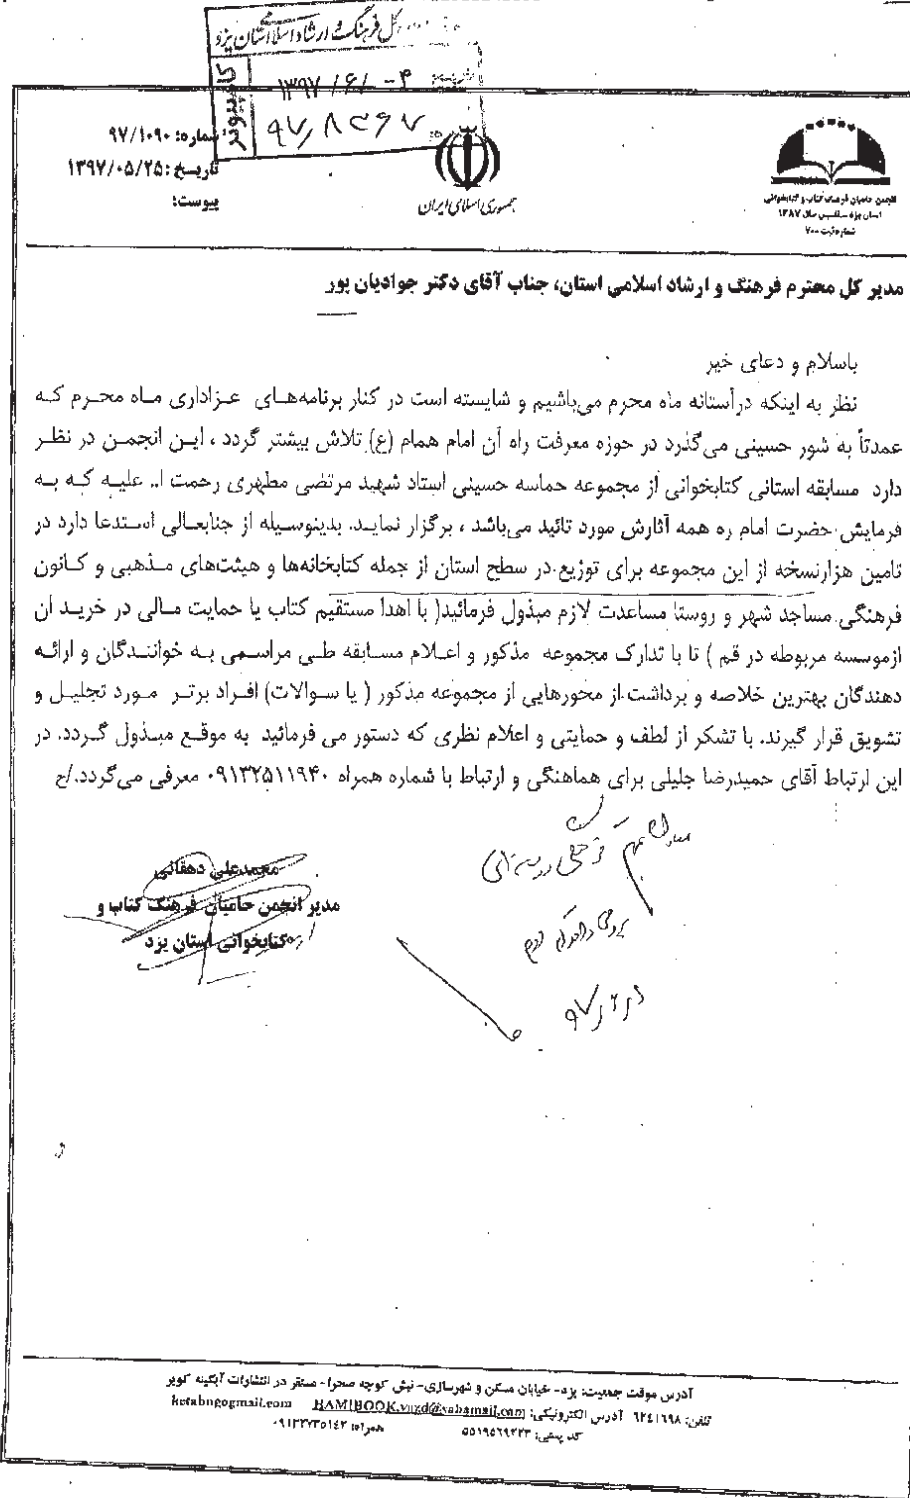 کل فرهنگ و ارشاد اسلامی استان یزد
کامپیوتر
۱۳۹۷/۶/۰۴
شماره: ۹۷/۱۰۹۰
تاریخ: ۱۳۹۷/۰۵/۲۵
پیوست:
جمهوری اسلامی ایران
انجمن حامیان فرهنگ کتاب و کتابخوانی
استان یزد - تاسیس سال ۱۳۸۷
شماره ثبت ۷۰۰
مدیر کل محترم فرهنگ و ارشاد اسلامی استان، جناب آقای دکتر جوادیان پور
باسلام و دعای خیر
نظر به اینکه درآستانه ماه محرم می‌باشیم و شایسته است در کنار برنامه‌های عزاداری ماه محرم که
عمدتاً به شور حسینی می‌گذرد در حوزه معرفت راه آن امام همام (ع) تلاش بیشتر گردد ، این انجمن در نظر
دارد مسابقه استانی کتابخوانی از مجموعه حماسه حسینی استاد شهید مرتضی مطهری رحمت ا.. علیه که به
فرمایش حضرت امام ره همه آثارش مورد تائید می‌باشد ، برگزار نماید. بدینوسیله از جنابعالی استدعا دارد در
تامین هزارنسخه از این مجموعه برای توزیع در سطح استان از جمله کتابخانه‌ها و هیئت‌های مذهبی و کانون
فرهنگی مساجد شهر و روستا مساعدت لازم مبذول فرمائید( با اهدا مستقیم کتاب یا حمایت مالی در خرید آن
ازموسسه مربوطه در قم ) تا با تدارک مجموعه مذکور و اعلام مسابقه طی مراسمی به خوانندگان و ارائه
دهندگان بهترین خلاصه و برداشت از محورهایی از مجموعه مذکور ( یا سوالات) افراد برتر مورد تجلیل و
تشویق قرار گیرند. با تشکر از لطف و حمایتی و اعلام نظری که دستور می فرمائید به موقع مبذول گردد. در
این ارتباط آقای حمیدرضا جلیلی برای هماهنگی و ارتباط با شماره همراه ۰۹۱۳۲۵۱۱۹۴۰ معرفی می‌گردد./ج
محمدعلی دهقانی
مدیر انجمن حامیان فرهنگ کتاب و
کتابخوانی استان یزد
آدرس موقت جمعیت: یزد- خیابان مسکن و شهرسازی- نبش کوچه صحرا - مستقر در انتشارات آبگینه کویر
تلفن: ۶۲۴۱۶۹۸ آدرس الکترونیکی: HAMIBOOK.yazd@yahamail.com ketabngogmail.com
کد پستی: ۵۵۱۹۵۶۹۴۲۳ همراه: ۰۹۱۳۲۷۳۵۱۴۲